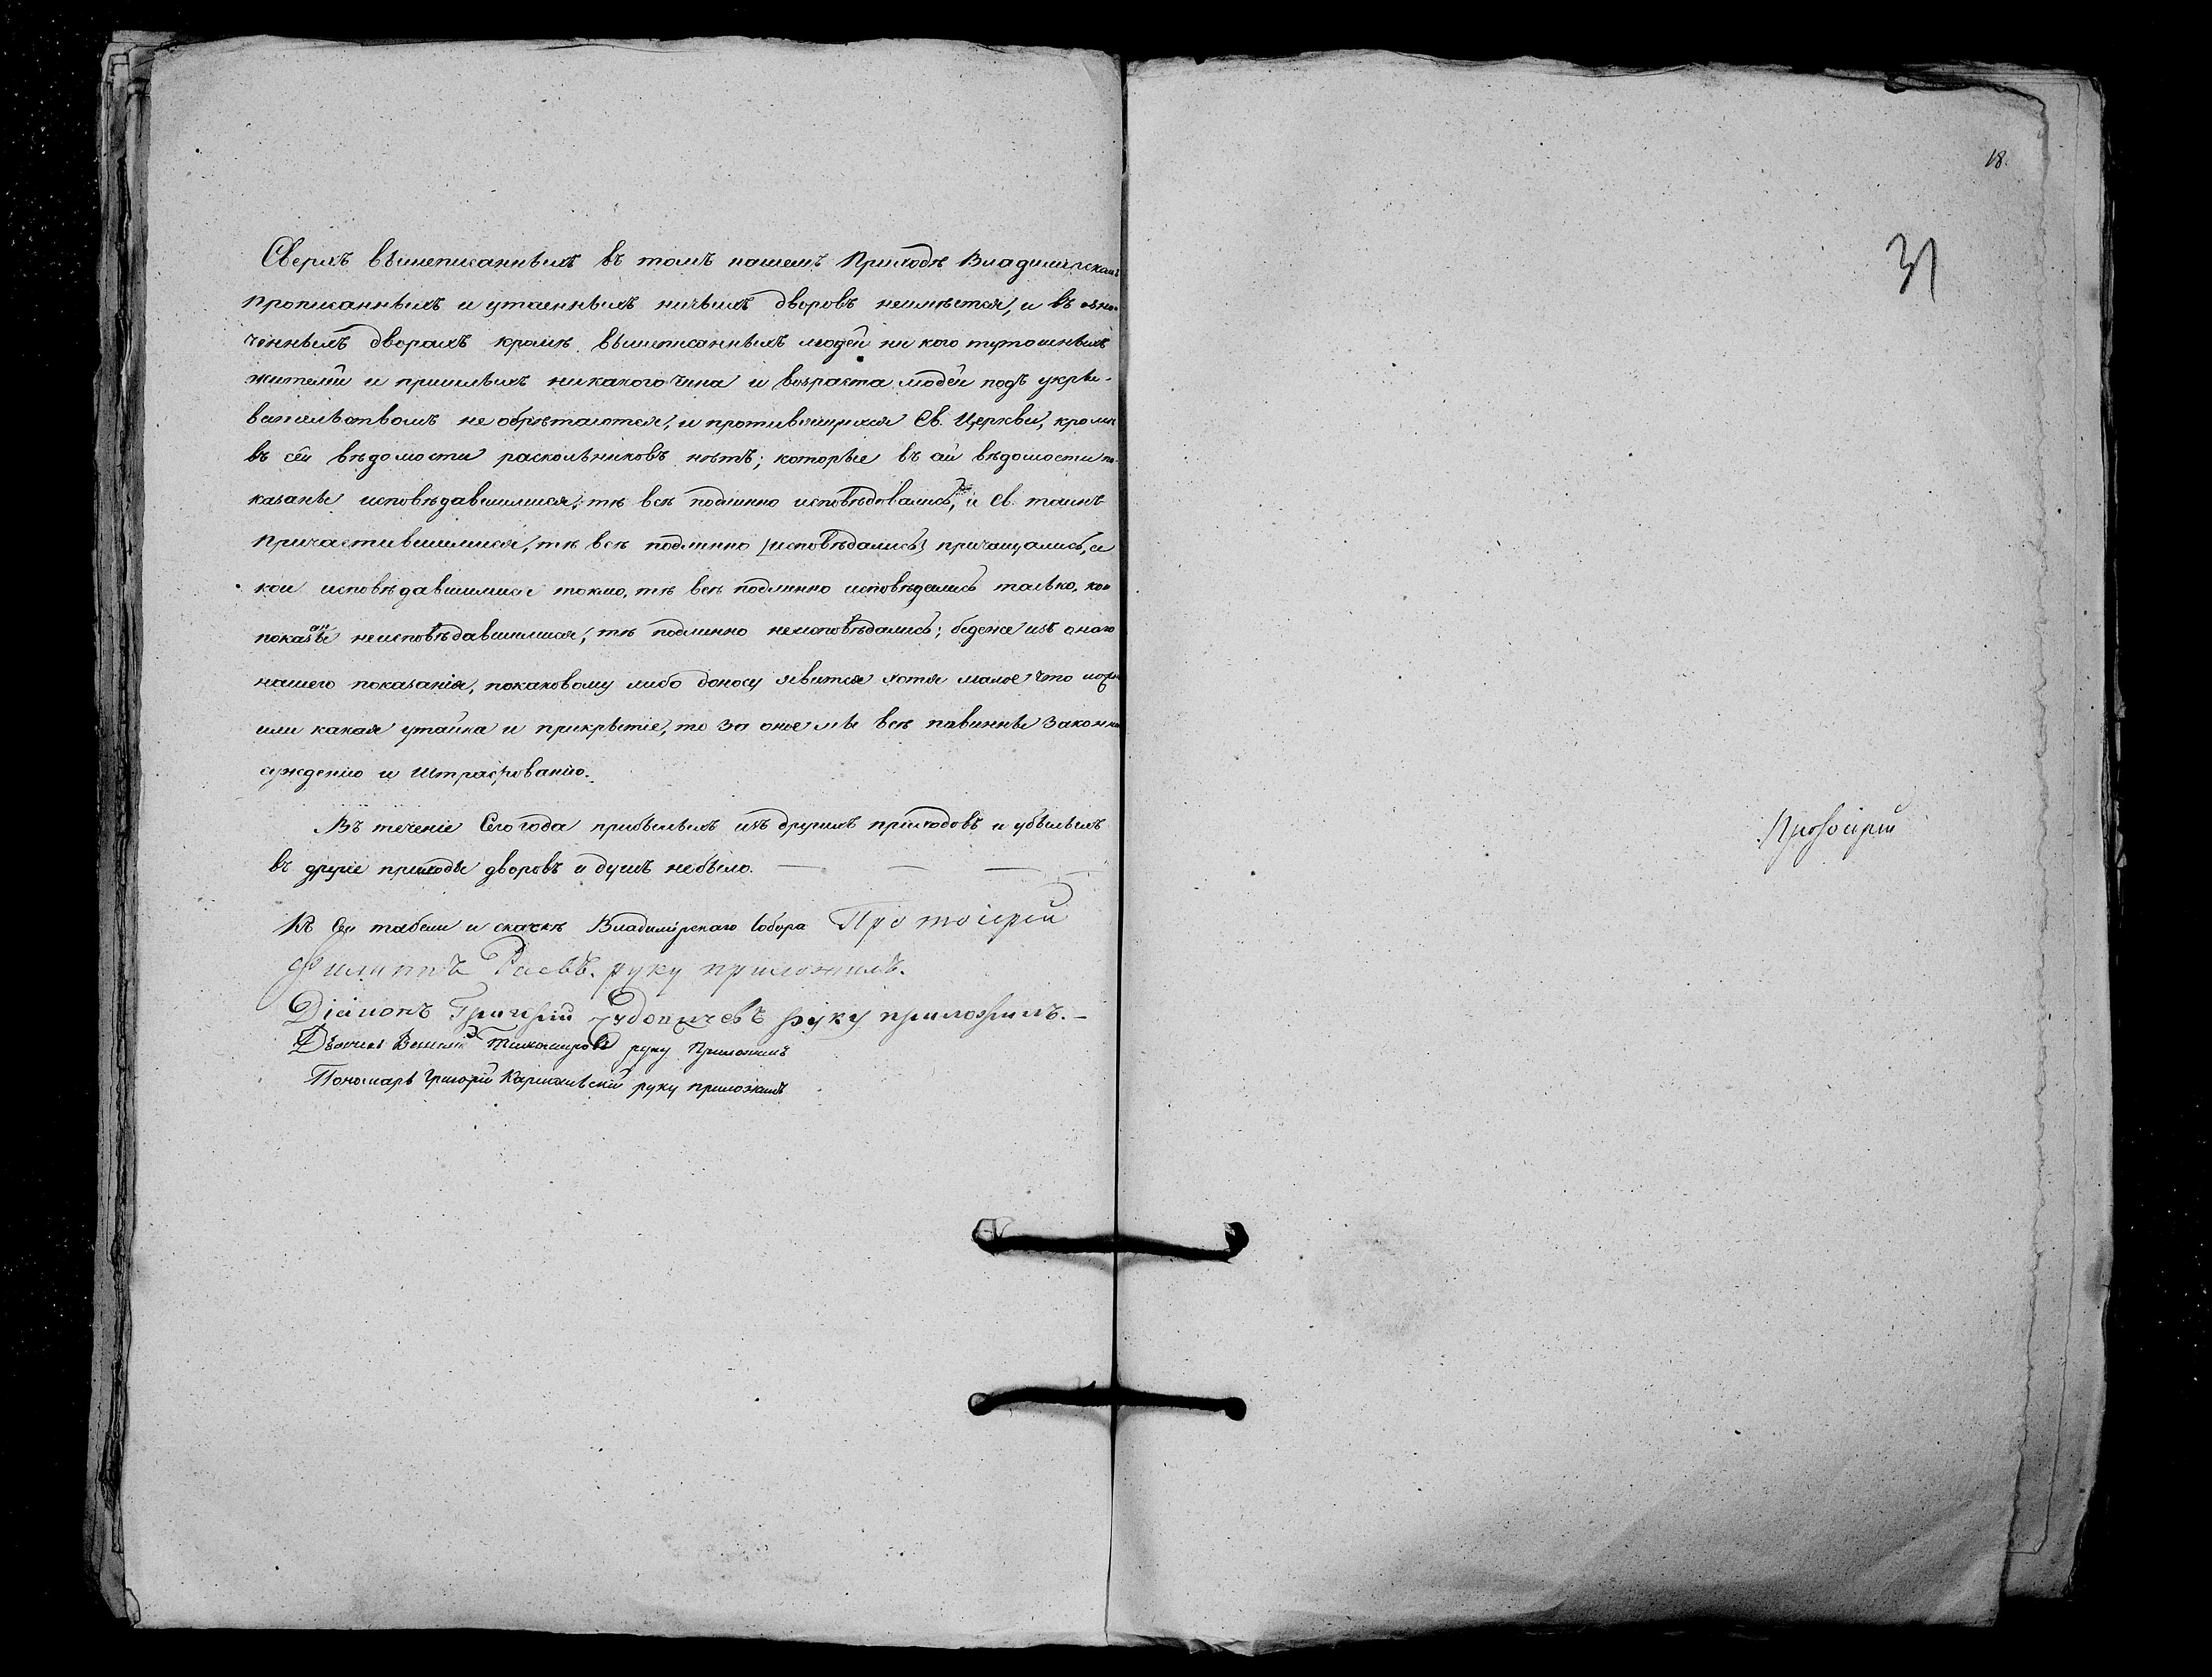 Сверхъ вышеписанныхъ въ томъ нашемъ Приходѣ Владимірскомъ
прописанныхъ и утаенныхъ ничьихъ дворовъ неимѣется, и въ озна-
ченныхъ дворахъ кромѣ вышеписанныхъ людей ни кого тутошныхъ
жителей и пришлыхъ никакого чина и возраста людей подъ укры-
вательствомъ не обрѣтаются, и противящихся Св. Церкви, кромѣ
въ сей вѣдомости раскольниковъ нѣтъ; которые въ ой вѣдомости по-
казаны исповѣдавшимися, тѣ всѣ подлинно исповѣдовались, и Св. таинъ
причастившимися, тѣ всѣ подлинно (исповѣдались) причащались, и
кои исповѣдавшимися токмо, тѣ всѣ подлинно исповѣдались только, кои
показаны неисповѣдавшимися, тѣ подлинно неисповѣдались; бедеже изъ онаго
нашего показанія, покаковому либо доносу явится хотя малое что
или какая утайка и прикрытіе, то за оное мы всѣ повинны законному
суждению и штрафованию.
Въ теченіе Сего года прибылыхъ изъ другихъ приходовъ и убылыхъ
въ другіе приходы дворовъ и душъ небыло.
Къ Сей табели и сказкѣ Владимірскаго Собора Протоіерей
Филиппъ Раевъ. руку приложилъ.
Діаконъ Григорій руку приложилъ.
Дьячекъ Василій Тихомировъ руку Приложилъ
Пономарь Григорій руку приложилъ
18.
31
Протоіерей